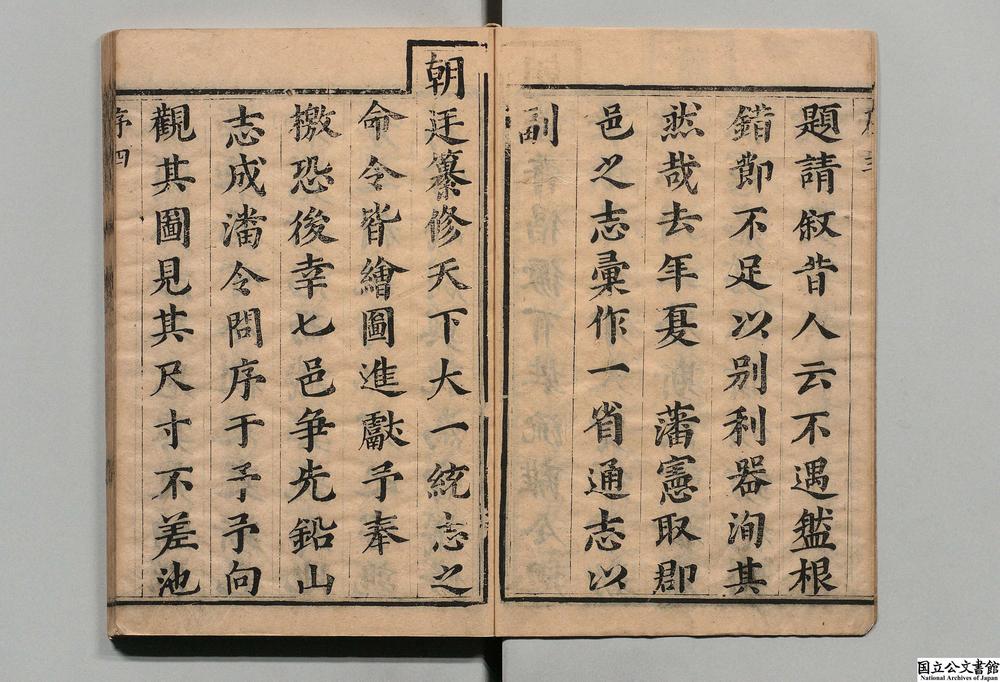 題請叙昔人云不遇盤根
錯節不足以别利器洵其
然哉去年夏 藩憲取郡
邑之志彙作一省通志以
副
朝廷纂修天下大一統志之
命令皆繪圖進獻予奉
檄恐後幸七邑爭先鉛山
志成潘令問序于予予向
觀其圖見其尺寸不差池
序四
国立公文書館
National Archives of Japan